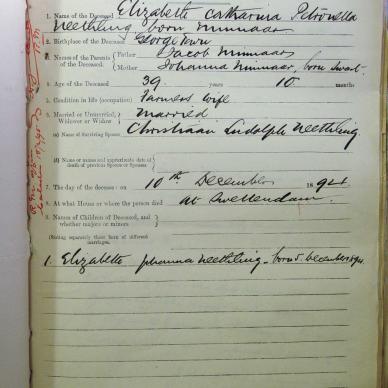 1. Name of the Deceased Elizabeth Catharina Petronella
Neethling born Minnaar
2. Birthplace of the Deceased George Town
3. Names of the Parents of the Deceased. Father Jacob Minnaar
Mother Johanna Minnaar, born Swart
4. Age of the Deceased 39 years 10 months
5. Condition in life (occupation) Farmers wife
6. Married or Unmarried, Widower or Widow Married
(a) Name of Surviving Spouse Christiaan Ludolph Neethling
(b) Name or names and approximate date of death of previous Spouse or Spouses
7. The day of the decease: on 10th December 1894
8. At what House or where the person died at Swellendam
9. Names of Children of Deceased, and whether majors or minors
(Stating separately those born of different marriages.)
1. Elizabeth Johanna Neethling born 5 December 1894